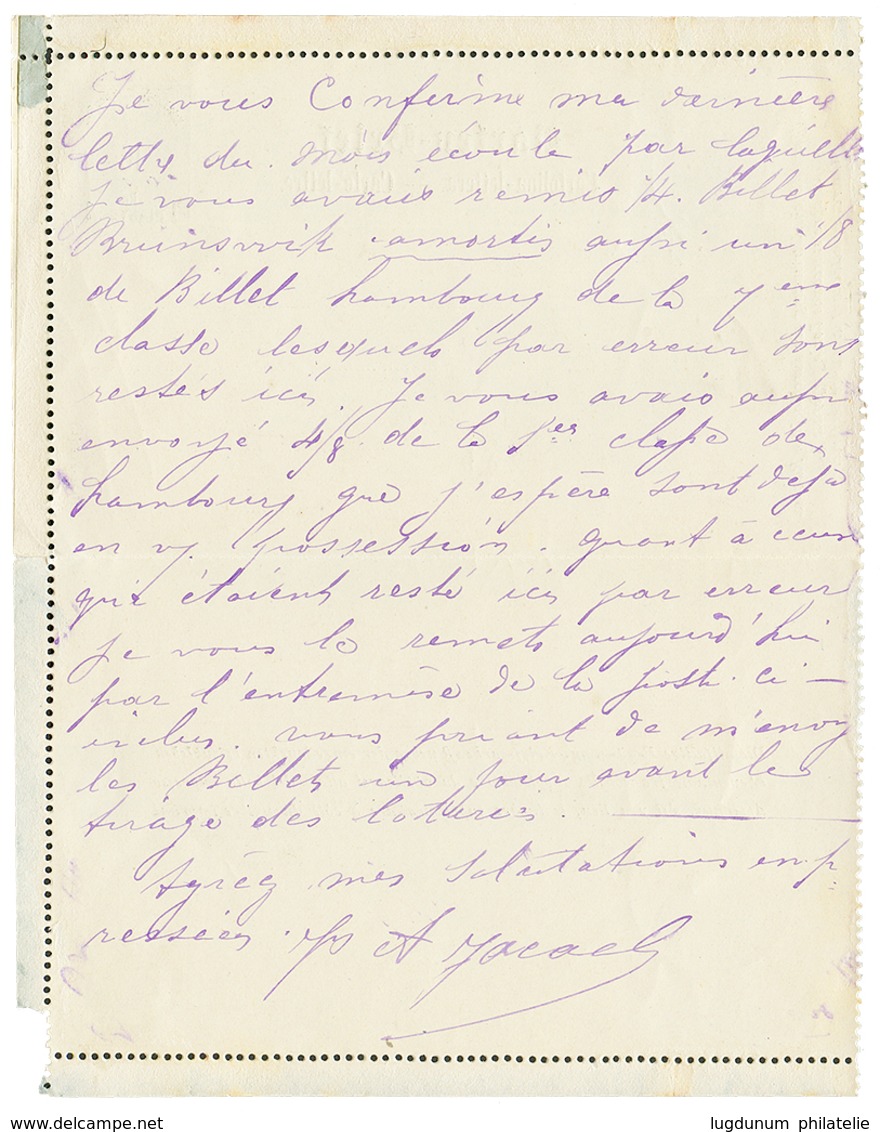 Je vous Confirme ma dernière
lettre du. mois écoulé par laquelle
Je vous avais remis 1/4. Billet
Brunsvvik amortis aussi un 1/8
de Billet hambourg de la 7eme
classe lesquels par erreur sont
restés ici. Je vous avais aussi
envoyé 4/8 de la classe de
hambourg que j'espère sont déja
en possession. quant à ceux
qui étaient resté ici par erreur
je vous le remets aujourd'hui
par l'entremise de la poste ci-
inclus. vous priant de m'envoy
les Billets un jour avant les
tirage des loteries.
Agréez mes Salutations emp-
ressées. A
www.delcampe.net
lugdunum philatelie